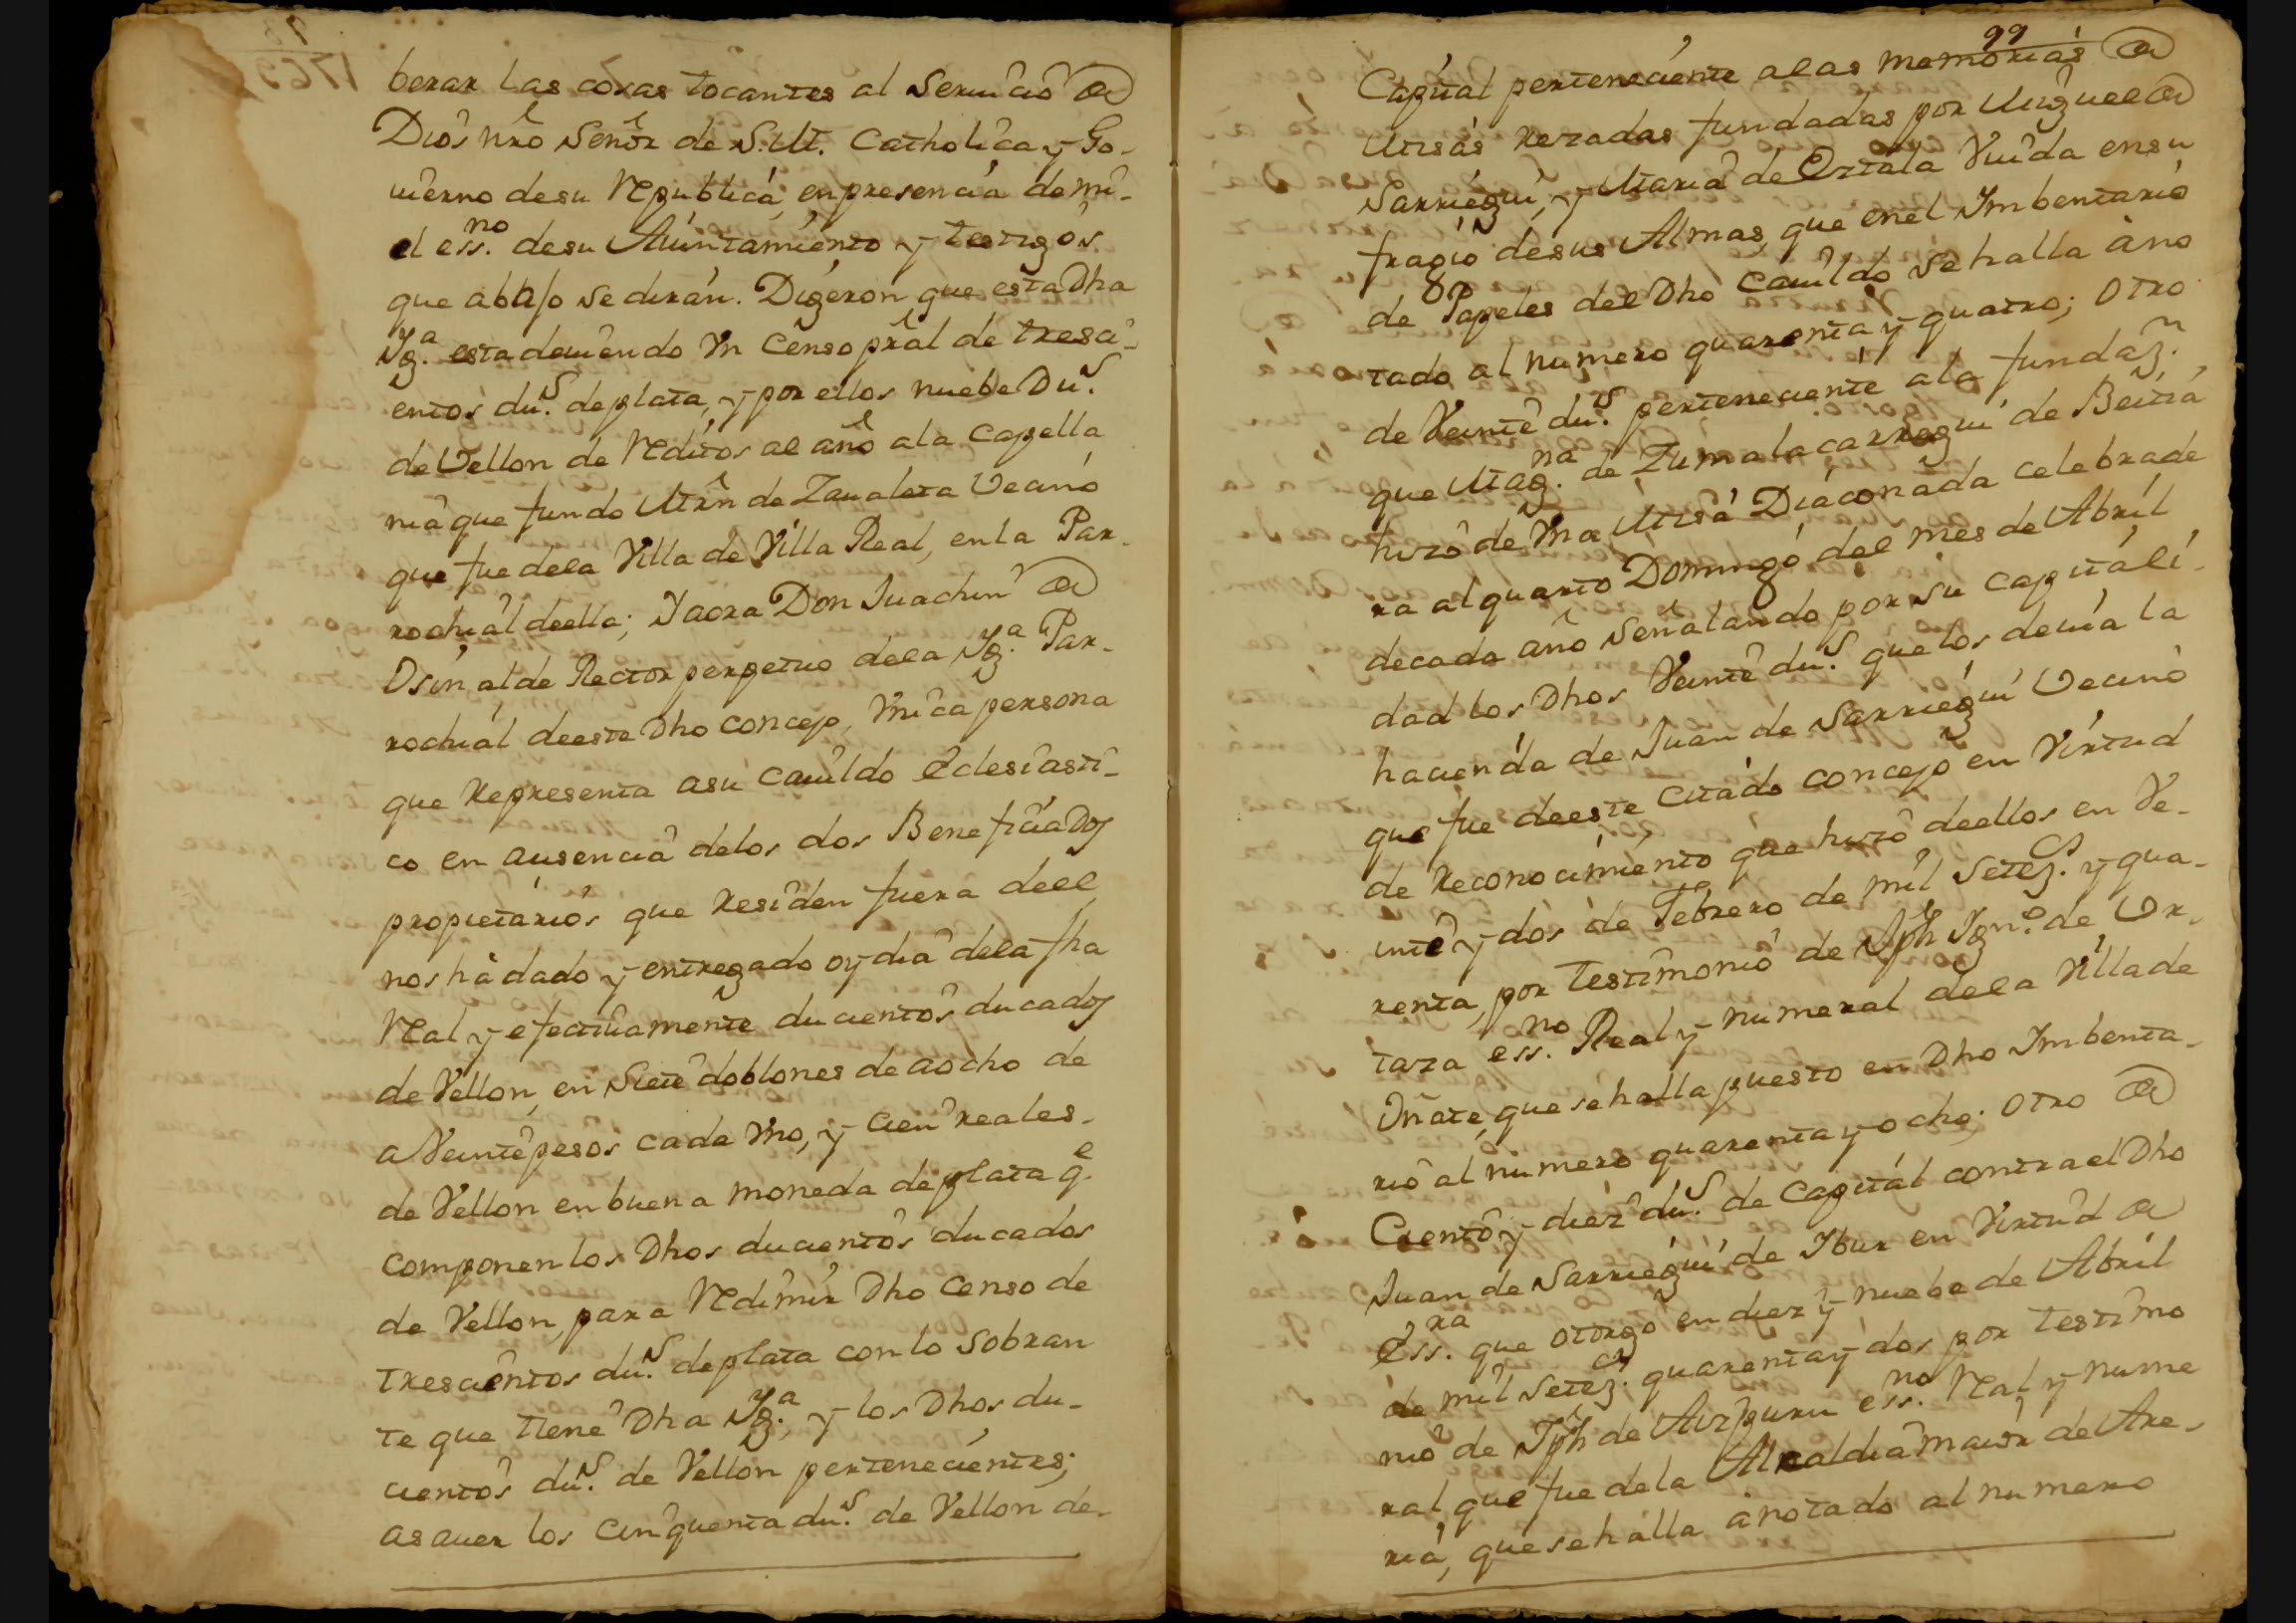 berar las cosas tocantes al Seruicio de
Dios nrō Señor de S. M. Catholica y Go-
uierno de su Republica, en presencia de mi-
el ess.no de su Aiuntamiento y testigos
que abajo se diran. Digeron que esta Dha
Yg.a esta deuiendo Vn Censo prāl de tresci-
entos du.s de plata, y por ellos nuebe Du.s
de Vellon de Reditos al año a la Capella
nia que fundo Mrn de Zaualeta Vecino
que fue dela Villa de Villa Real, en la Par-
rochial de ella; Y aora Don Juachin de
Osinalde Rector perpetuo dela Yg.a Par-
rochial de este Dho concejo, Vnica persona
que Representa a su Cauildo Eclesiasti-
co en ausencia delos dos Beneficiados
propietarios que Residen fuera de el,
nos hà dado y entregado oy dia dela fha
Real y efectiuamente ducientos ducados
de Vellon, en Siete doblones de aocho de
a Veinte pesos cada Vno, y Cien reales-
de Vellon en buena moneda de plata q.e
componen los Dhos ducientos ducados
de Vellon, para Redimir Dho Censo de
trescientos du.s de plata con lo Sobran
te que tiene Dha Yg.a, y los Dhos du-
cientos du.s de Vellon pertenecientes;
asauer los cinquenta du.s de Vellon de-
99
Capital perteneciente alas memorias de
Missas Rezadas fundadas por Miguel de
Sarriegui, y Maria de Oztala Viuda en su
fragio de sus Almas, que en el Imbentario
de Papeles del Dho Cauildo Se halla àno
tado al numero quarenta y quatro; Otro
de Veinte du.s perteneciente ala fundaz.n
que Mag.na de Zumalacarregui de Beitia
hizo de Vna Missa Diaconada celebrade
ra al quarto Domingo del mes de Abril
de cada año Señalando por su capitali-
dad los Dhos Veinte du.s que los deuia la
hacienda de Juan de Sarriegui Vecino
que fue de este citado concejo en Virtud
de Reconocimiento que hizo de ellos en Ve-
inte y dos de Febrero de mil Setez.s y qua-
renta, por testimonio de Jph Ygn.o de Ur-
taza ess.no Real y numeral dela Villa de
Oñate, que se halla puesto en Dho Imbenta-
rio al numero quarenta y ocho; Otro de
Ciento y diez du.s de Capital contra el Dho
Juan de Sarriegui de Ybur en Virtud de
Ess.ra que otorgo en diez y nuebe de Abril
de mil Setez.s quarenta y dos por testimo
nio de Jph de Aizpuru ess.no Real y nume
ral que fue dela Alcaldia maior de Are-
ria, que se halla ànotado al numero